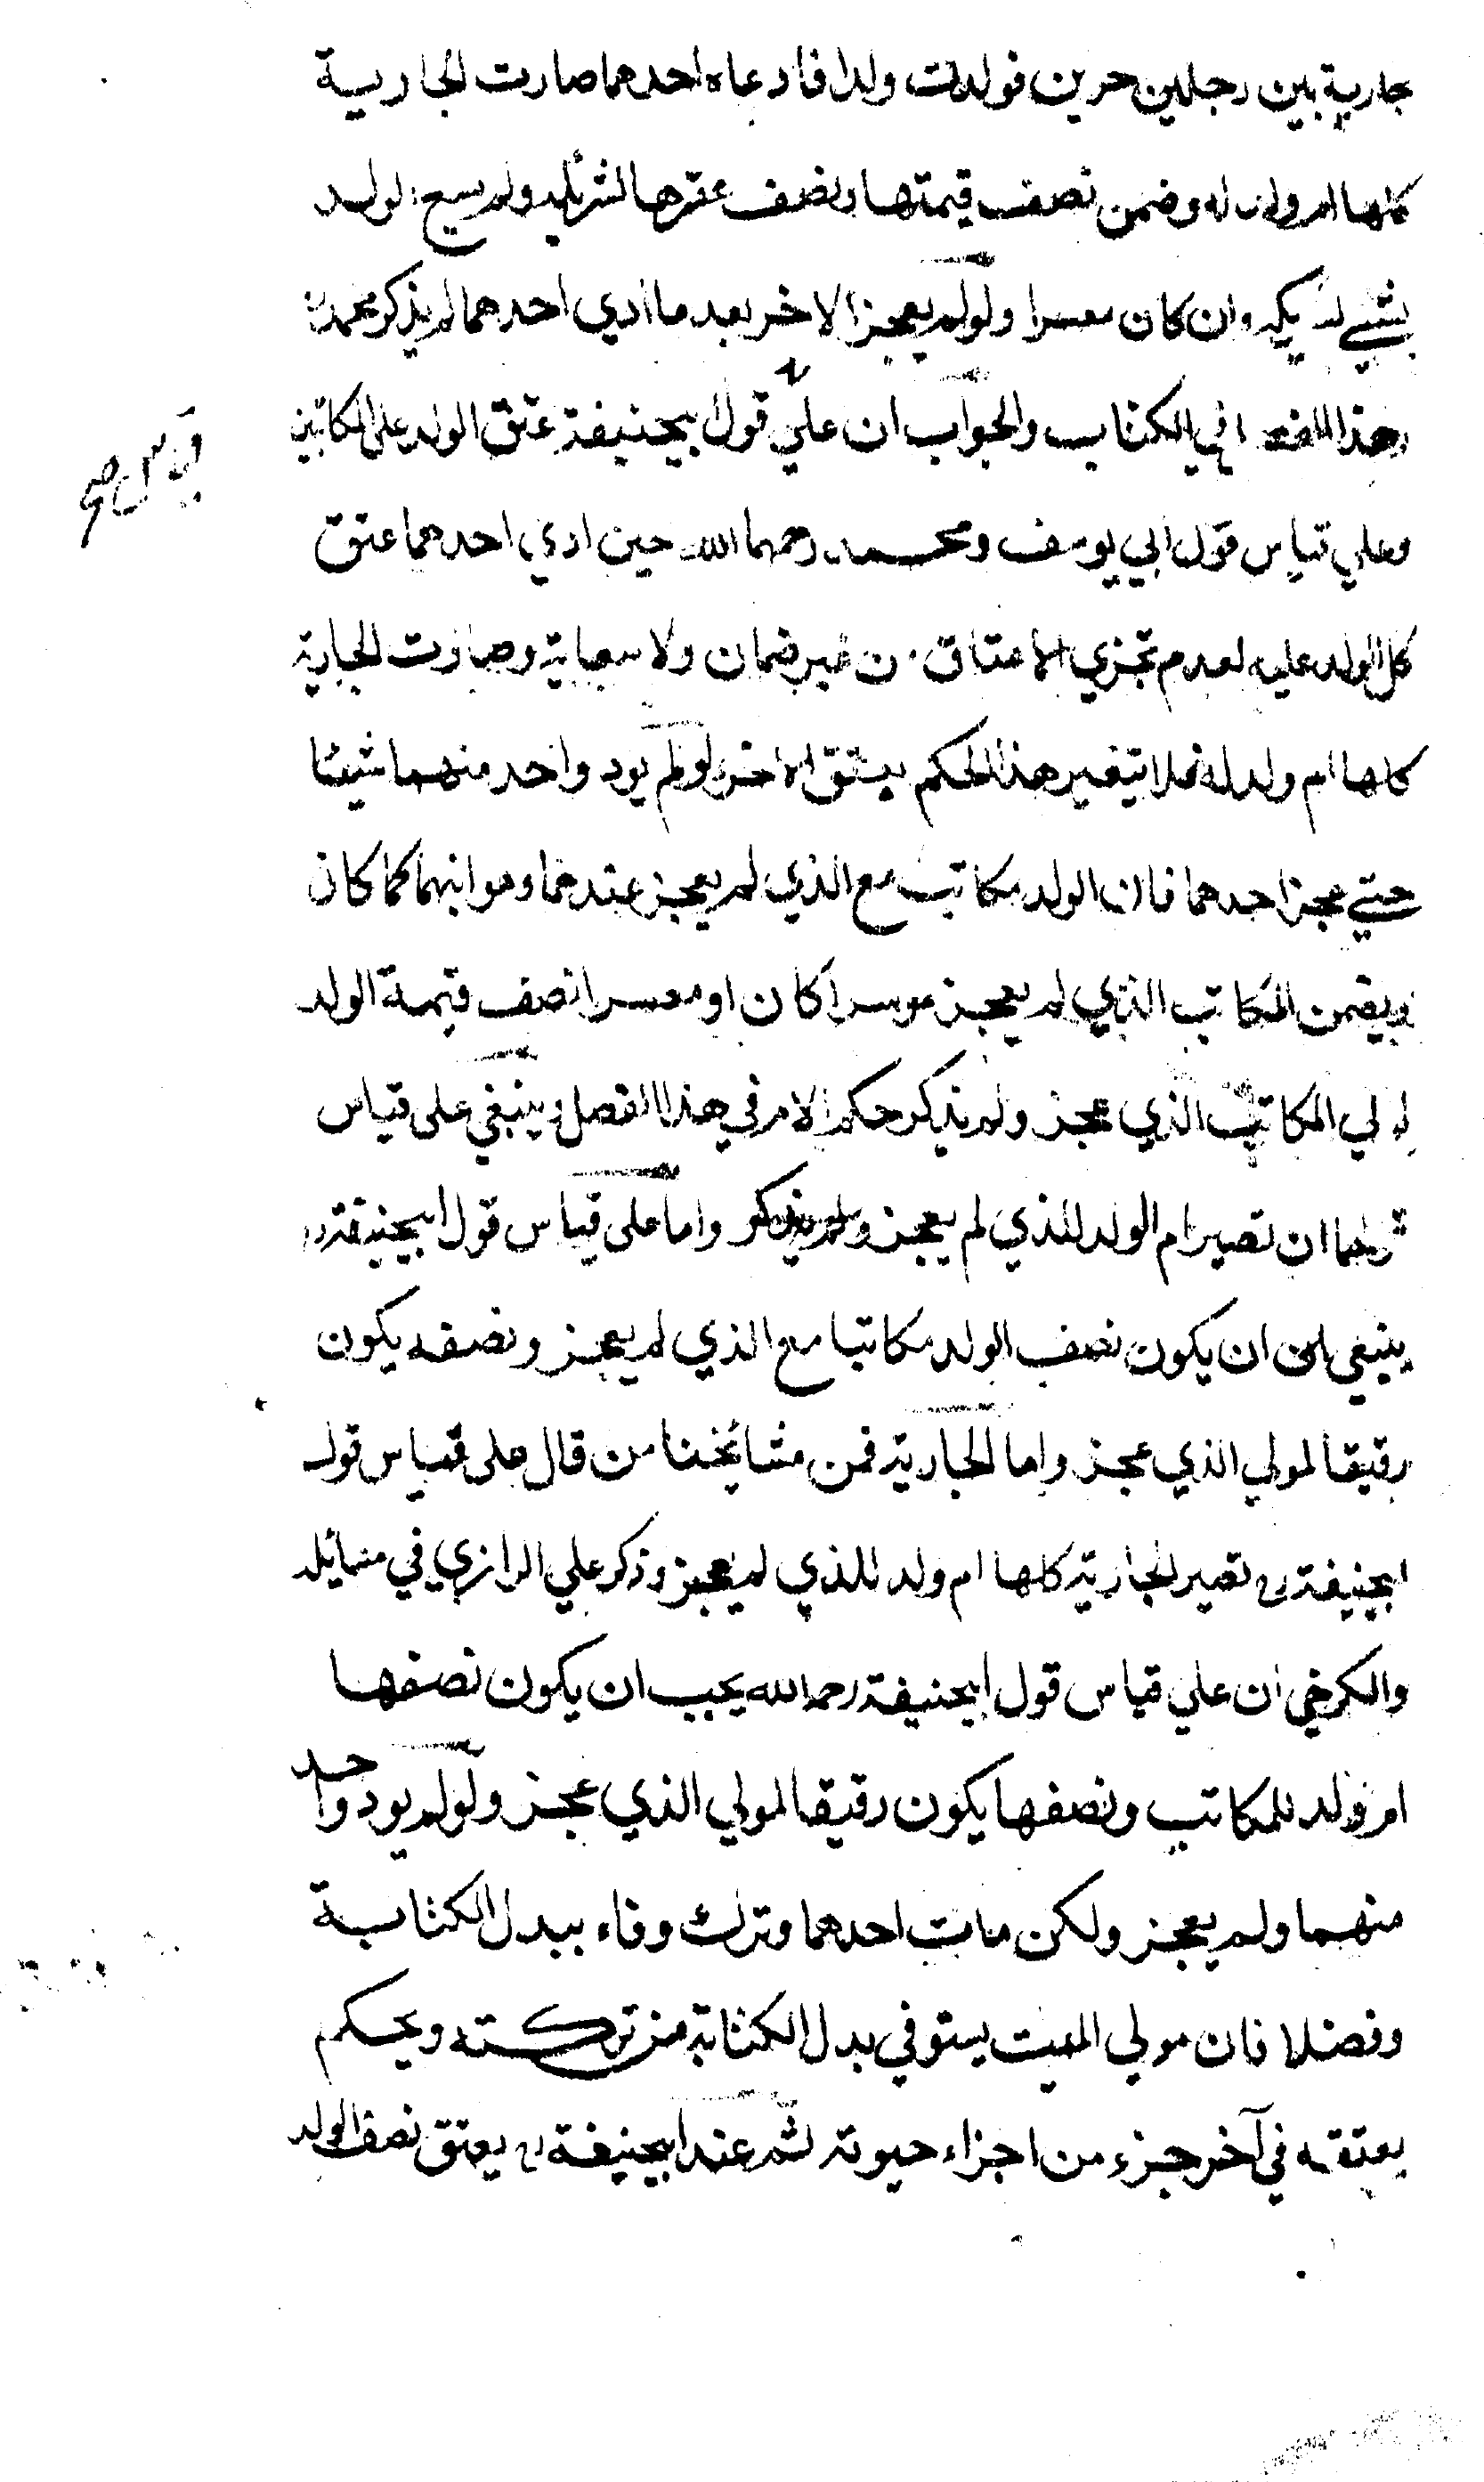 جارية بين رجلين حرين فولدت ولدا فادعاه احدهما صارت الجارية
كلها ام ولد له وضمن نصف قيمتها ونصف عقرها لشريكه ولم يسع الولد
بشيء لشريكه وان كان معسرا ولو لم يعجز الاخر بعد ما ادي احدهما لم يذكر محمد
هذا الفصل في الكتاب والجواب ان علي قول ابيحنيفة عتق الولد على المكاتبين
قياس صح
وعلي قياس قول ابي يوسف ومحمد رحمهما الله حين ادي احدهما عتق
كل الولد عليه لعدم تجزي الاعتاق من غير ضمان ولا سعاية وصارت الجارية
كلها ام ولد له فلا يتغير هذا الحكم بعتق الاخر ولو لم يود واحد منهما شيئا
حتي عجز احدهما فان الولد مكاتب مع الذي لم يعجز عندهما وهو ابنهما كما كان
ويضمن المكاتب الذي لم يعجز موسرا كان او معسرا نصف قيمة الولد
لمولي المكاتب الذي عجز ولم يذكر حكم الام في هذا الفصل وينبغي على قياس
قولهما ان تصير ام الولد للذي لم يعجز ولم يذكر واما على قياس قول ابيحنيفة رح
ينبغي ان يكون نصف الولد مكاتبا مع الذي لم يعجز ونصفه يكون
رقيقا لمولي الذي عجز واما الجارية فمن مشائخنا من قال على قياس قول
ابيحنيفة رح تصير الجارية كلها ام ولد للذي لم يعجز وذكر علي الرازي في مسائله
والكرخي ان علي قياس قول ابيحنيفة رحمه الله يجب ان يكون نصفها
ام ولد للمكاتب ونصفها يكون رقيقا لمولي الذي عجز ولو لم يود واحد
منهما ولم يعجز ولكن مات احدهما وترك وفاء ببدل الكتابة
وفضلا فان مولي الميت يستوفي بدل الكتابة من تركته ويحكم
بعتقه في آخر جزء من اجزاء حيوته ثم عند ابيحنيفة رح يعتق نصف الولد